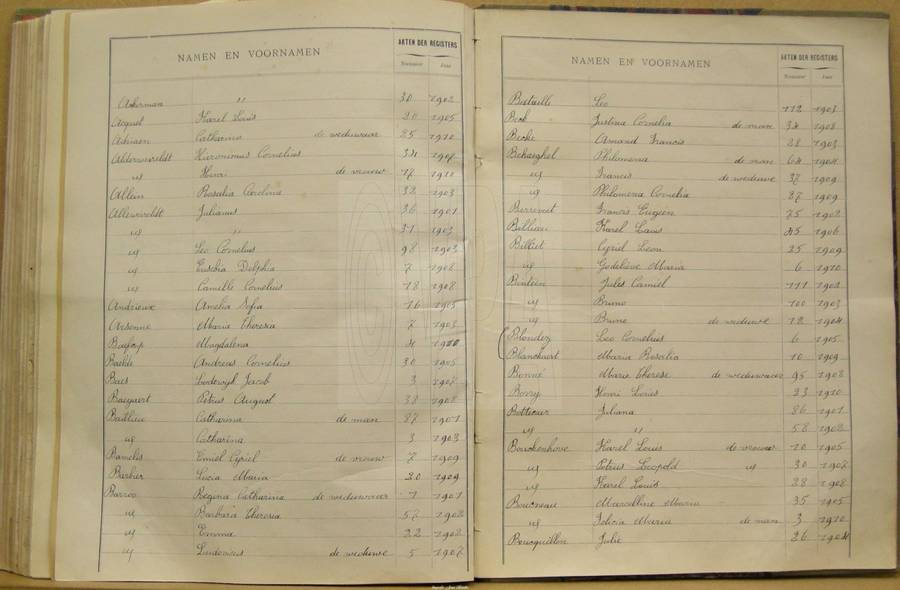 NAMEN EN VOORNAMEN AKTEN DER REGISTERS
Nummer Jaar
Ackerman " 30 1902
Acquel Karel Louis 20 1905
Adriaen Catharina de weduwaar 25 1910
Alderweireldt Hieronimus Cornelius 34
id Henri de vrouw 17 1910
Allein Rosalia Carolina 32 1903
Alleweireldt Julianus 36 1901
id " 31 1903
id Leo Cornelius 98 1903
id Eusebia Delphia 7 1906
id Camille Cornelius 18 1908
Andrieux Amelia Sofia 16 1905
Arsenne Maria Theresia 7 1903
Magdalena 4 1910
Baelde Andreas Cornelius 30 1905
Baes Lodewijk Jacob 3 1902
Baeyaert Petrus August 38 1908
Bailliew Catharina de man 87 1901
id Catharina 3 1903
Bamelis Emiel Cyriel de vrouw 7 1909
Barbier Lucia Maria 20 1909
Barroo Regina Catharina de weduwaar 1 1901
id Barbara Theresia 57 1902
id Emma 22 1908
id Ludovicus de weduwe 5 1907
NAMEN EN VOORNAMEN AKTEN DER REGISTERS
Nummer Jaar
Bataille Leo 112 1903
Beck Justina Cornelia de man 34 1908
Becke Amand Francis 28 1903
Behaeghel Philomena de man 64 1904
id Francis de weduwe 37 1909
id Philomena Cornelia 27 1909
Berremet Francis Eugeen 75 1902
Billiau Karel Louis 45 1906
Billiet Cyriel Leon 25 1909
id Godelieve Maria 6 1910
Jules Camiel 111 1902
id Bruno 100 1903
id Bruno de weduwe 12 1904
Blondez Leo Cornelius 6 1905
Blanckaert Maria Rosalia 10 1909
Bonné Marie Therese de weduwaar 95 1902
Bovry Henri Louis 23 1910
Bottecour Juliana 86 1901
id " 58 1902
Bouckenhove Karel Louis de vrouw 20 1905
id Petrus Leopold id 30 1907
id Karel Louis 28 1908
Boucneau Marcelline Maria 35 1905
id Felicia Maria de man 3 1910
Boucquillon Julie 26 1904